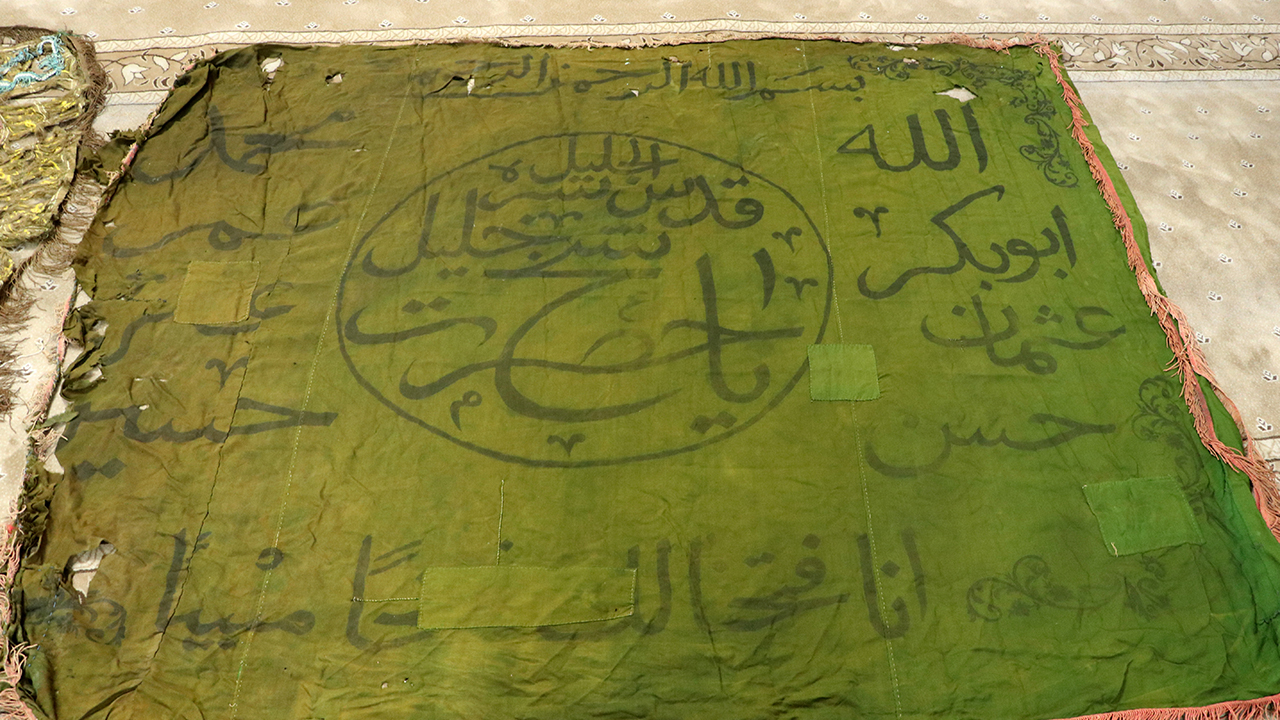 بسم الله الرحمن الرحيم
الله
محمد
ابوبكر
عمر
عثمان
علي
حسن
حسين
يا حضرت
قدس سره
الجليل
انا فتحنا لك فتحًا مبينًا